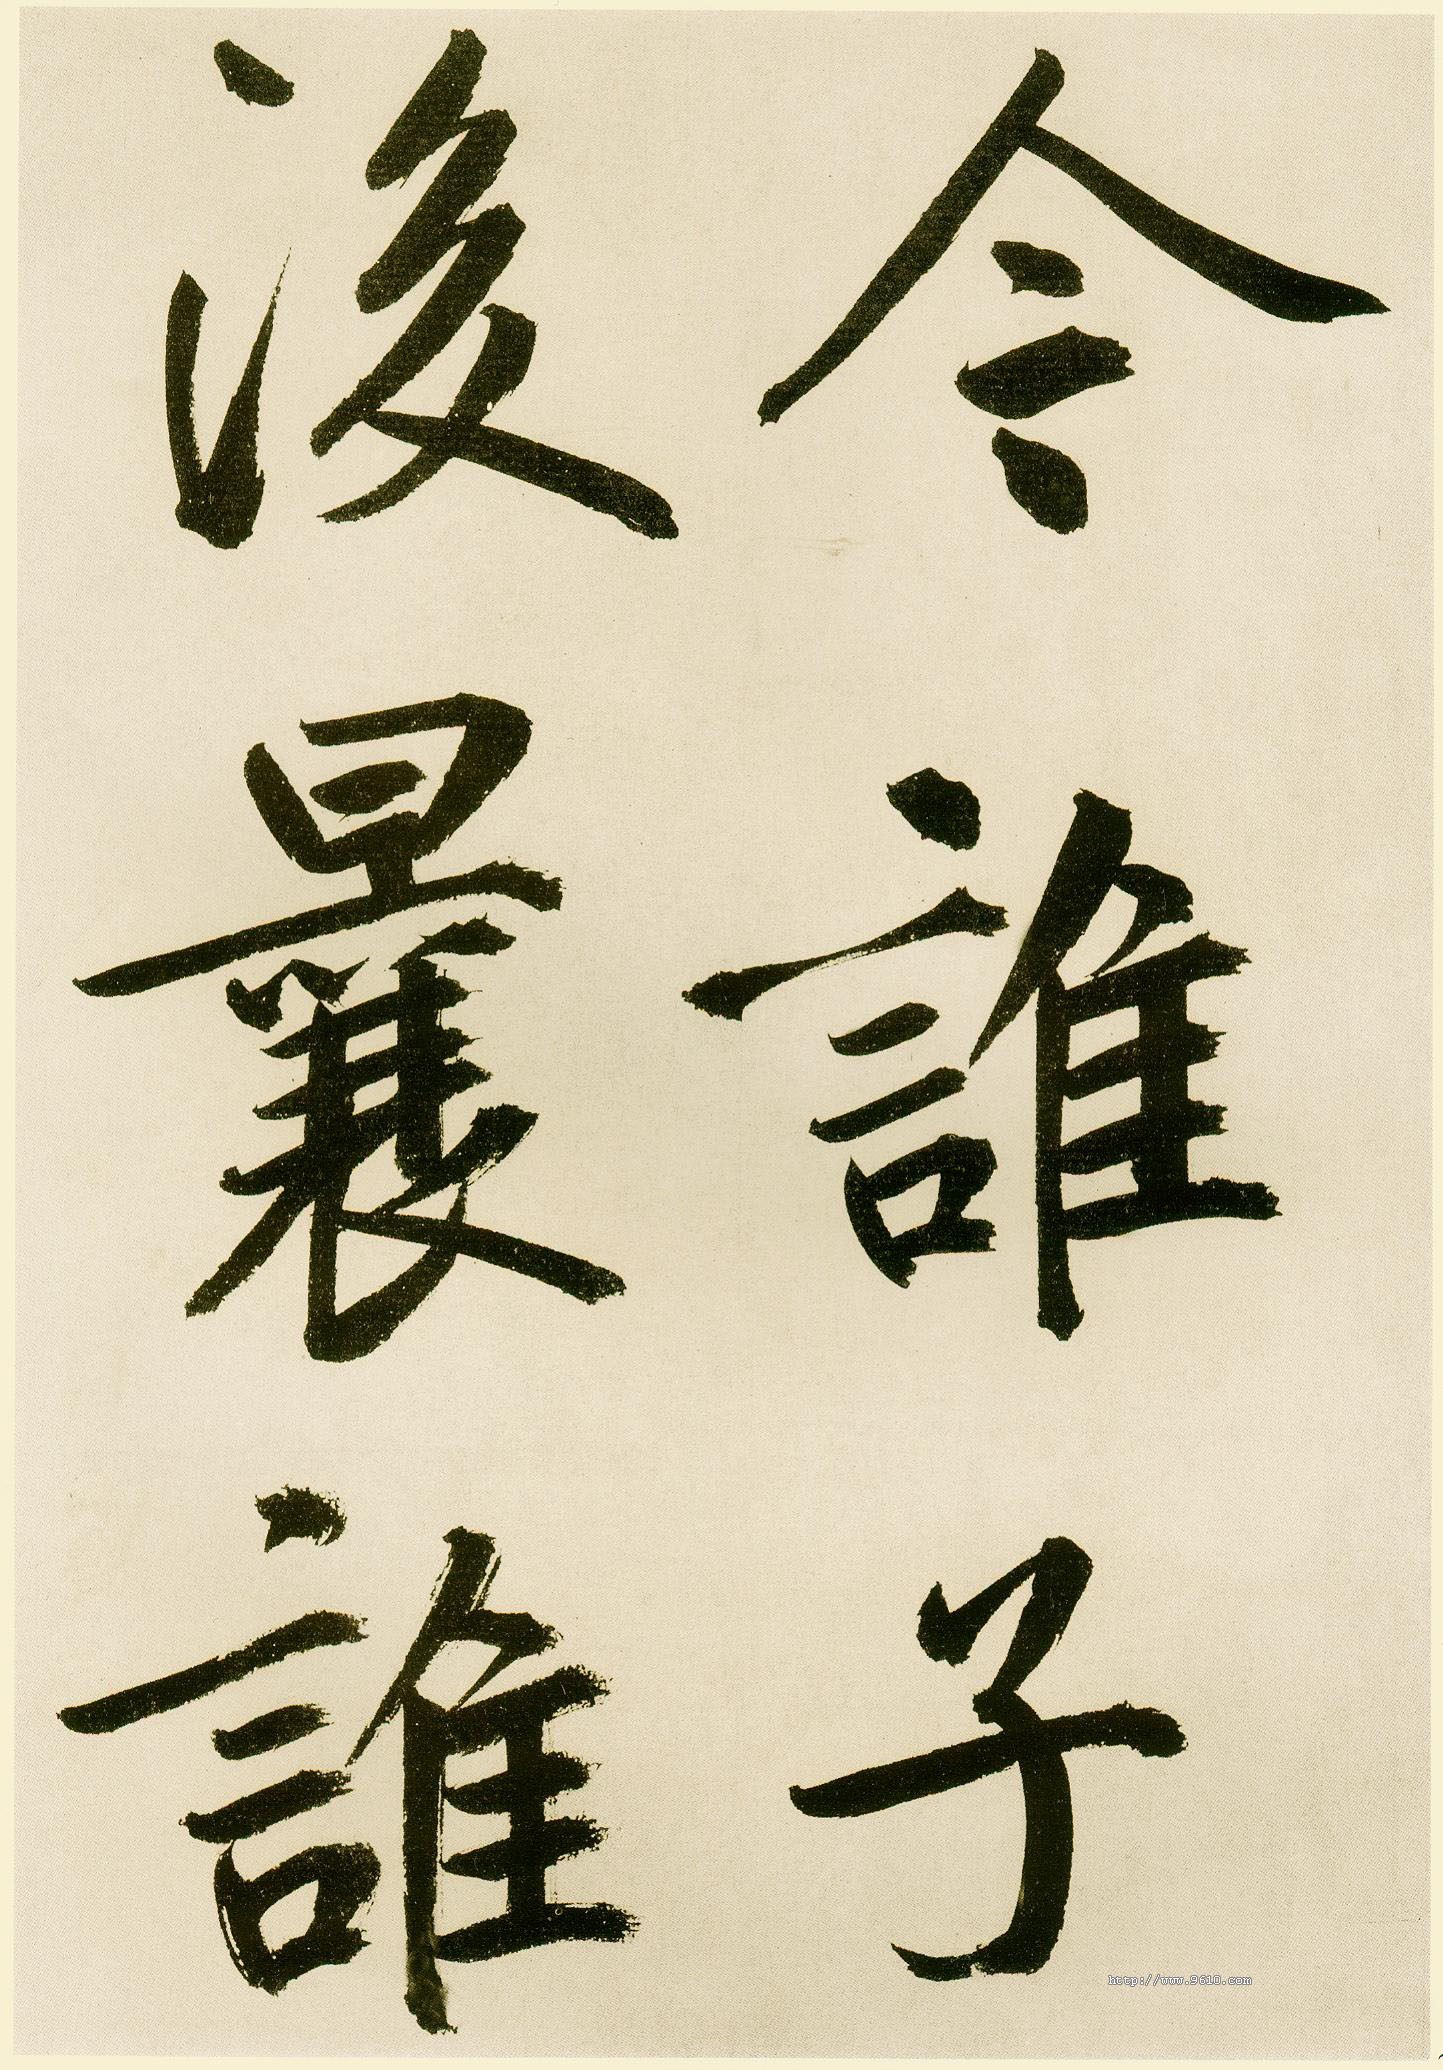 今誰子
後曩誰
http://www.9610.com